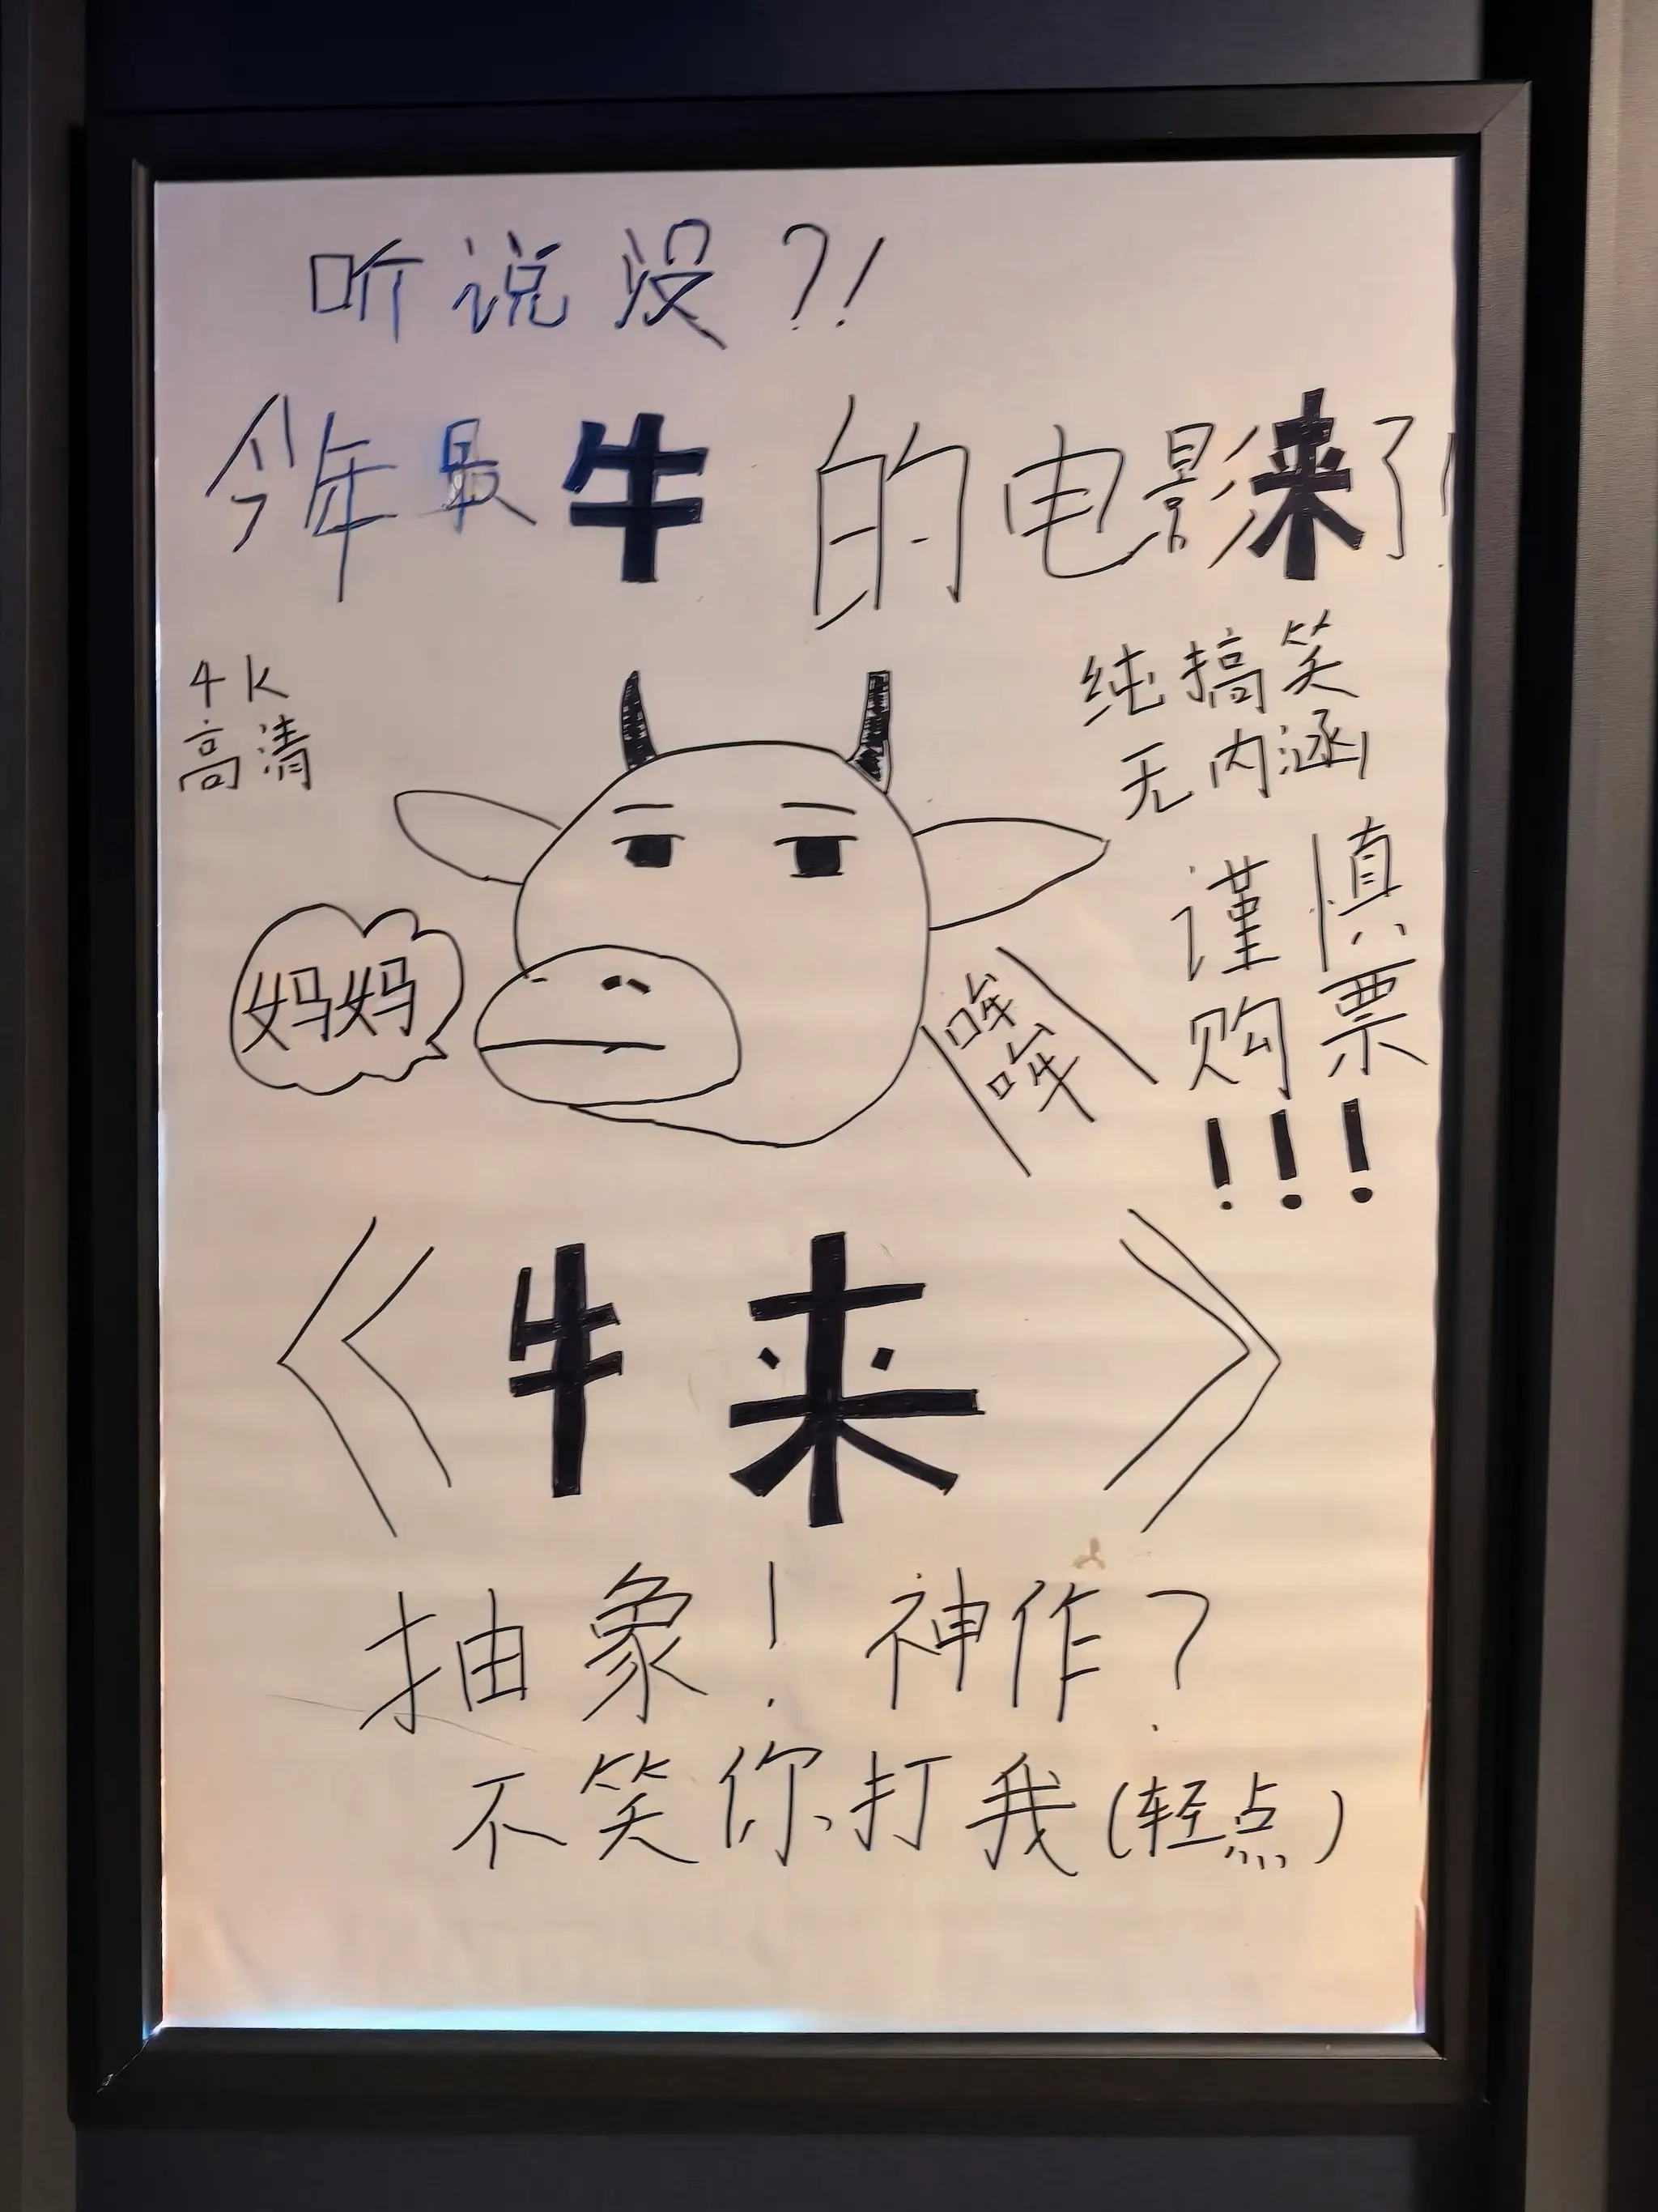 听说没?!
今年最牛的电影来了!
4K
高清
纯搞笑
无内涵
谨慎
购票
!!!
妈妈
哞
哞
《牛来》
抽象!神作?
不笑你打我(轻点)